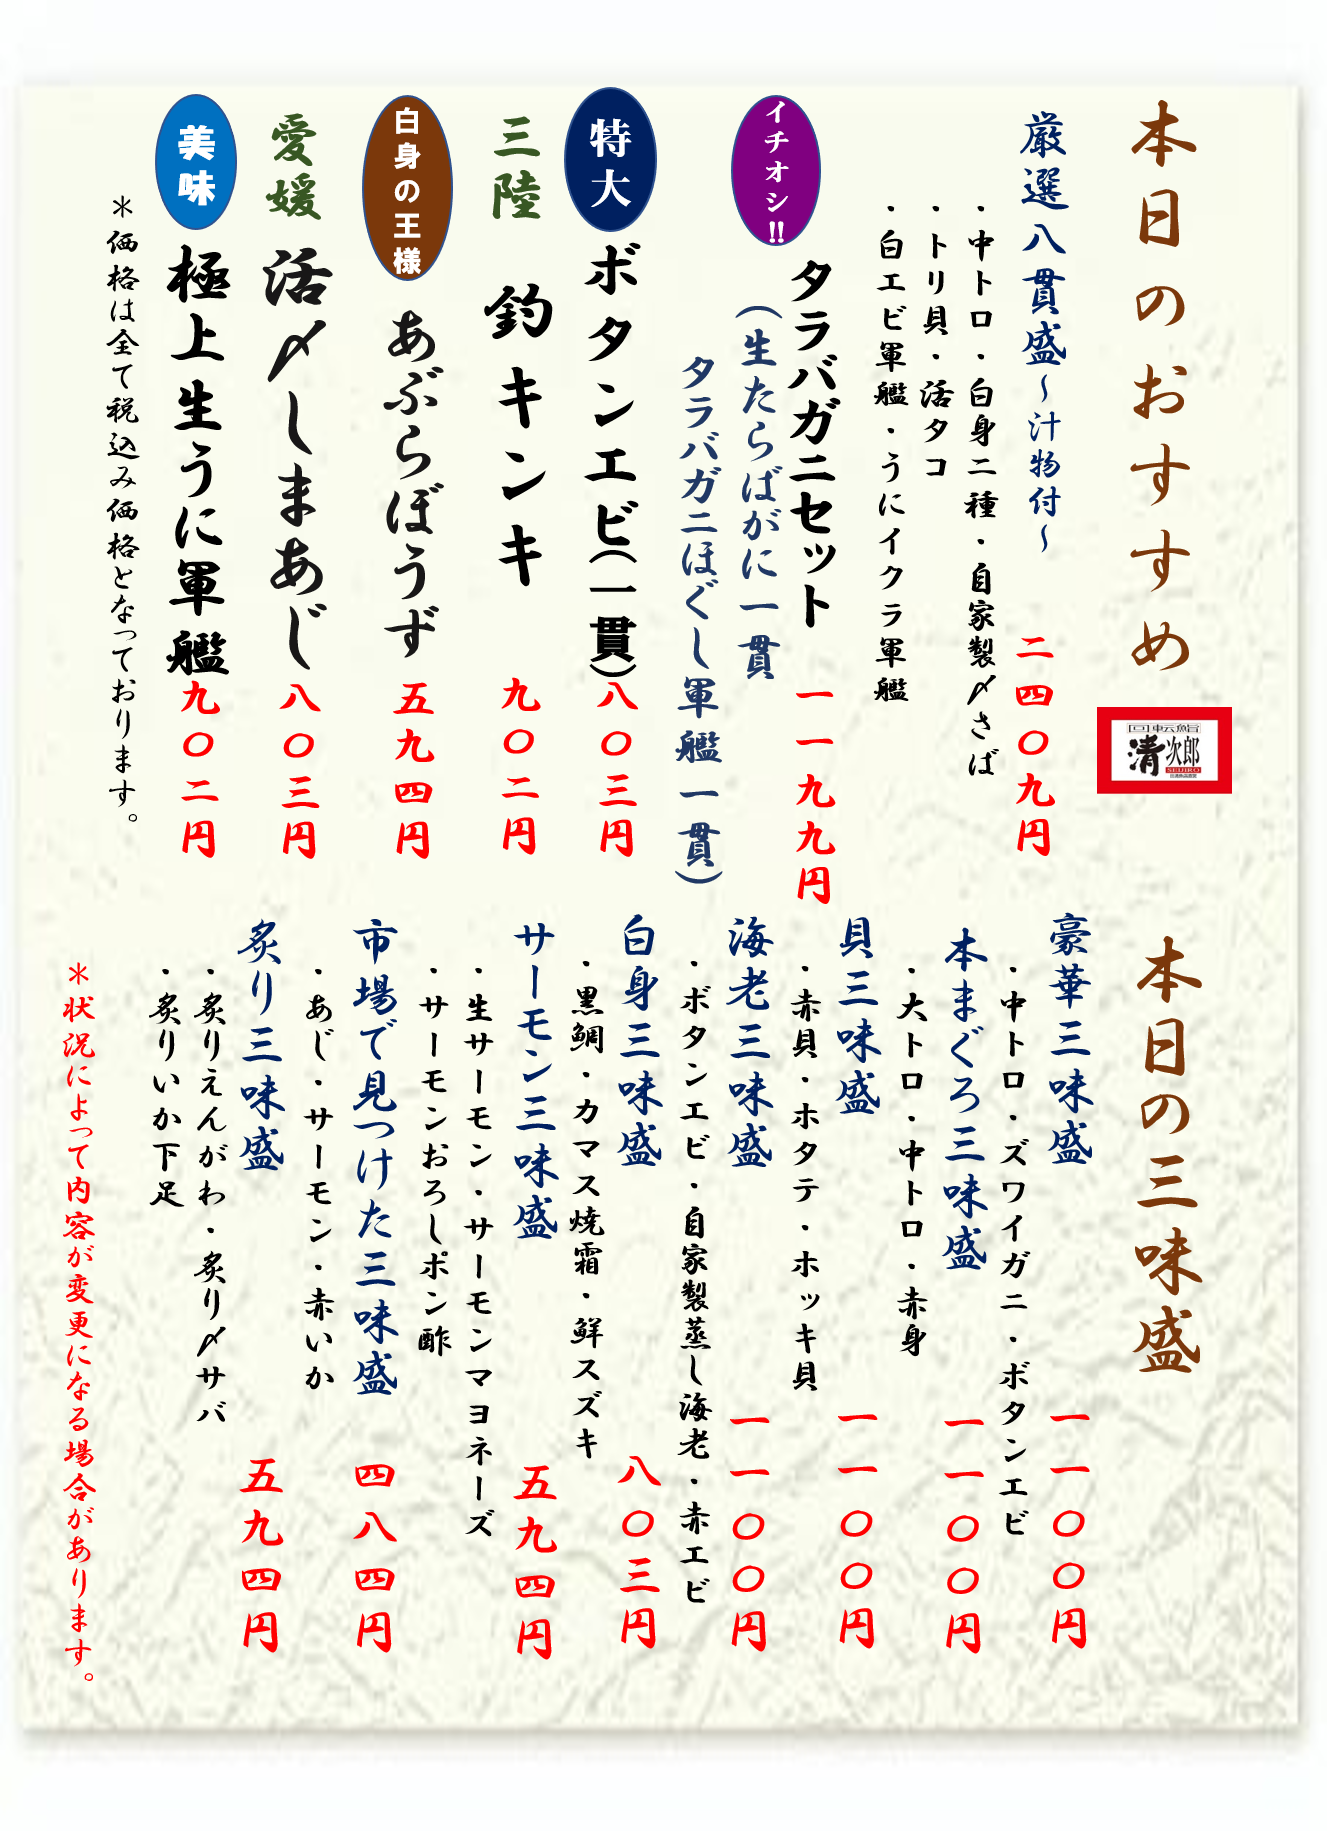 本日のおすすめ
回転鮨
清次郎
SEIJIRO
厳選八貫盛～汁物付～
二四〇九円
・中トロ・白身二種・自家製〆さば
・トリ貝・活タコ
・白エビ軍艦・うにイクラ軍艦
イチオシ!!
タラバガニセット
一一九九円
(生たらばがに一貫
タラバガニほぐし軍艦一貫)
特大
ボタンエビ(一貫)
八〇三円
三陸
釣キンキ
九〇二円
白身の王様
あぶらぼうず
五九四円
愛媛
活〆しまあじ
八〇三円
美味
極上生うに軍艦
九〇二円
＊価格は全て税込み価格となっております。
本日の三味盛
豪華三味盛
一一〇〇円
・中トロ・ズワイガニ・ボタンエビ
本まぐろ三味盛
一一〇〇円
・大トロ・中トロ・赤身
貝三味盛
一一〇〇円
・赤貝・ホタテ・ホッキ貝
海老三味盛
一一〇〇円
・ボタンエビ・自家製蒸し海老・赤エビ
白身三味盛
八〇三円
・黒鯛・カマス焼霜・鮮スズキ
サーモン三味盛
五九四円
・生サーモン・サーモンマヨネーズ
・サーモンおろしポン酢
市場で見つけた三味盛
四八四円
・あじ・サーモン・赤いか
炙り三味盛
五九四円
・炙りえんがわ・炙り〆サバ
・炙りいか下足
＊状況によって内容が変更になる場合があります。